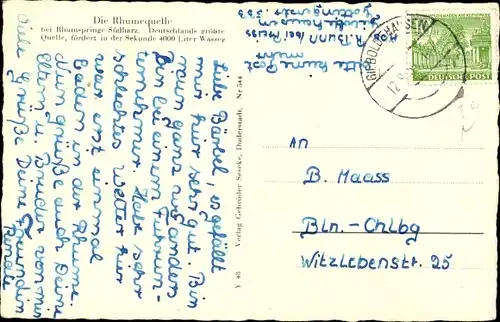 Die Rhumequelle
bei Rhumspringe Südharz. Deutschlands größte
Quelle, fördert in der Sekunde 4000 Liter Wasser
Liebe Bärbel, es gefällt
mir hier sehr gut. Bin
nun ganz wo anders
Bin bei einem Fuhrun-
ternehmer. Habe sehr
schlechtes Wetter hier
war erst einmal
baden in der Rhume.
Nun grüße auch Deine
Eltern u. Bruder von mir
Viele Grüße Deine Freundin
Renate
Bitte keine Post
mehr
Y 48 Verlag Gebrüder Sesecke, Duderstadt. Nr. 544
GIEBOLDEHAUSEN
12.9.
DEUTSCHE POST
An
B. Maass
Bln.-Chlbg
Witzlebenstr. 25